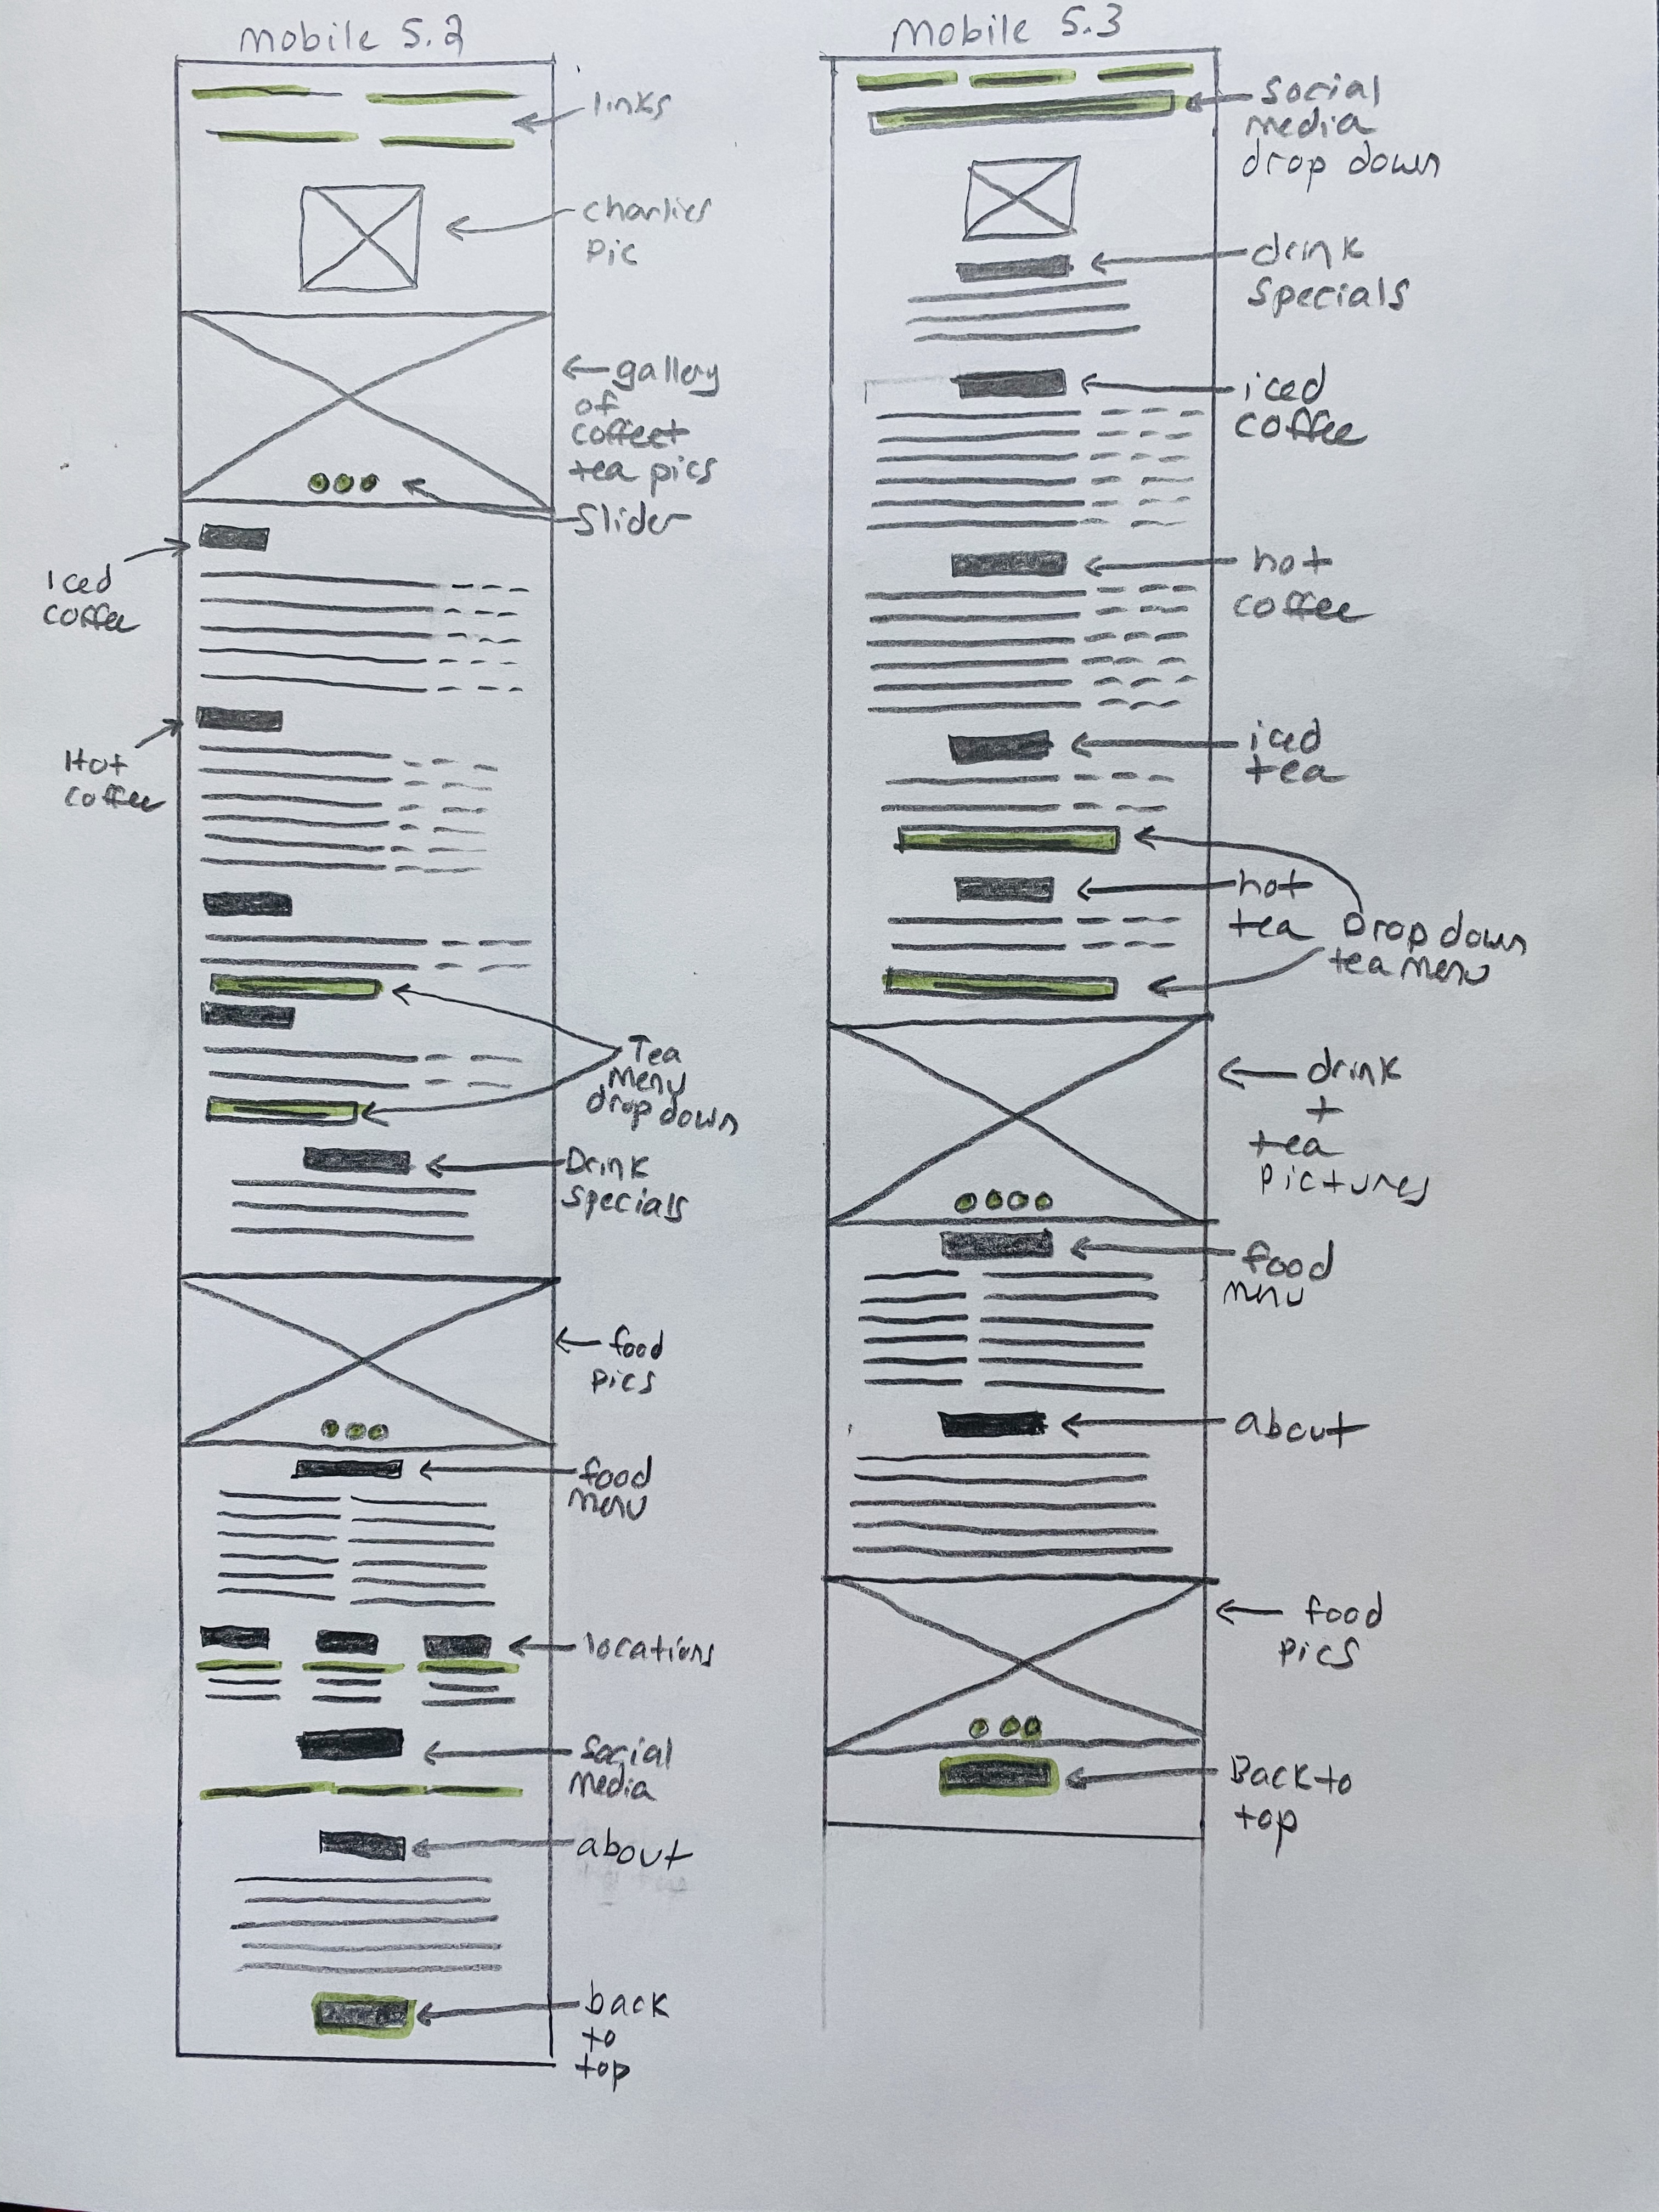 Mobile 5.2
links
charlies
Pic
gallery
of
coffee+
tea pics
Slider
Iced
coffee
Hot
coffee
Tea
Menu
drop down
Drink
Specials
food
pics
food
menu
locations
Social
Media
about
back
to
top
Mobile 5.3
Social
Media
drop down
drink
Specials
iced
coffee
hot
coffee
iced
tea
hot
tea
Drop down
tea menu
drink
+
tea
pictures
food
menu
about
food
pics
Back to
top